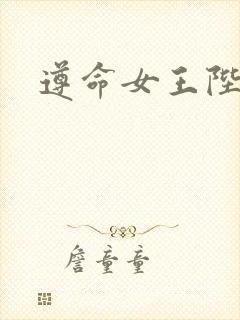 遵命女王陛
詹童童